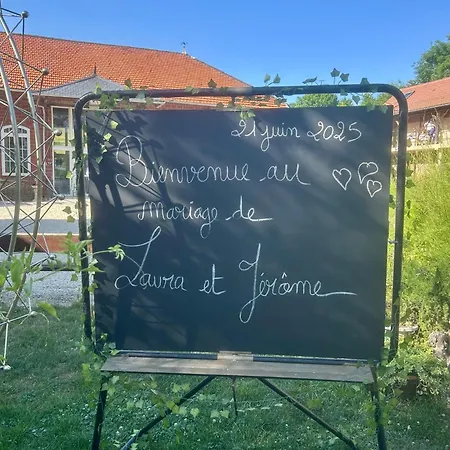 21 juin 2025
Bienvenue au
mariage de
Laura et Jérôme